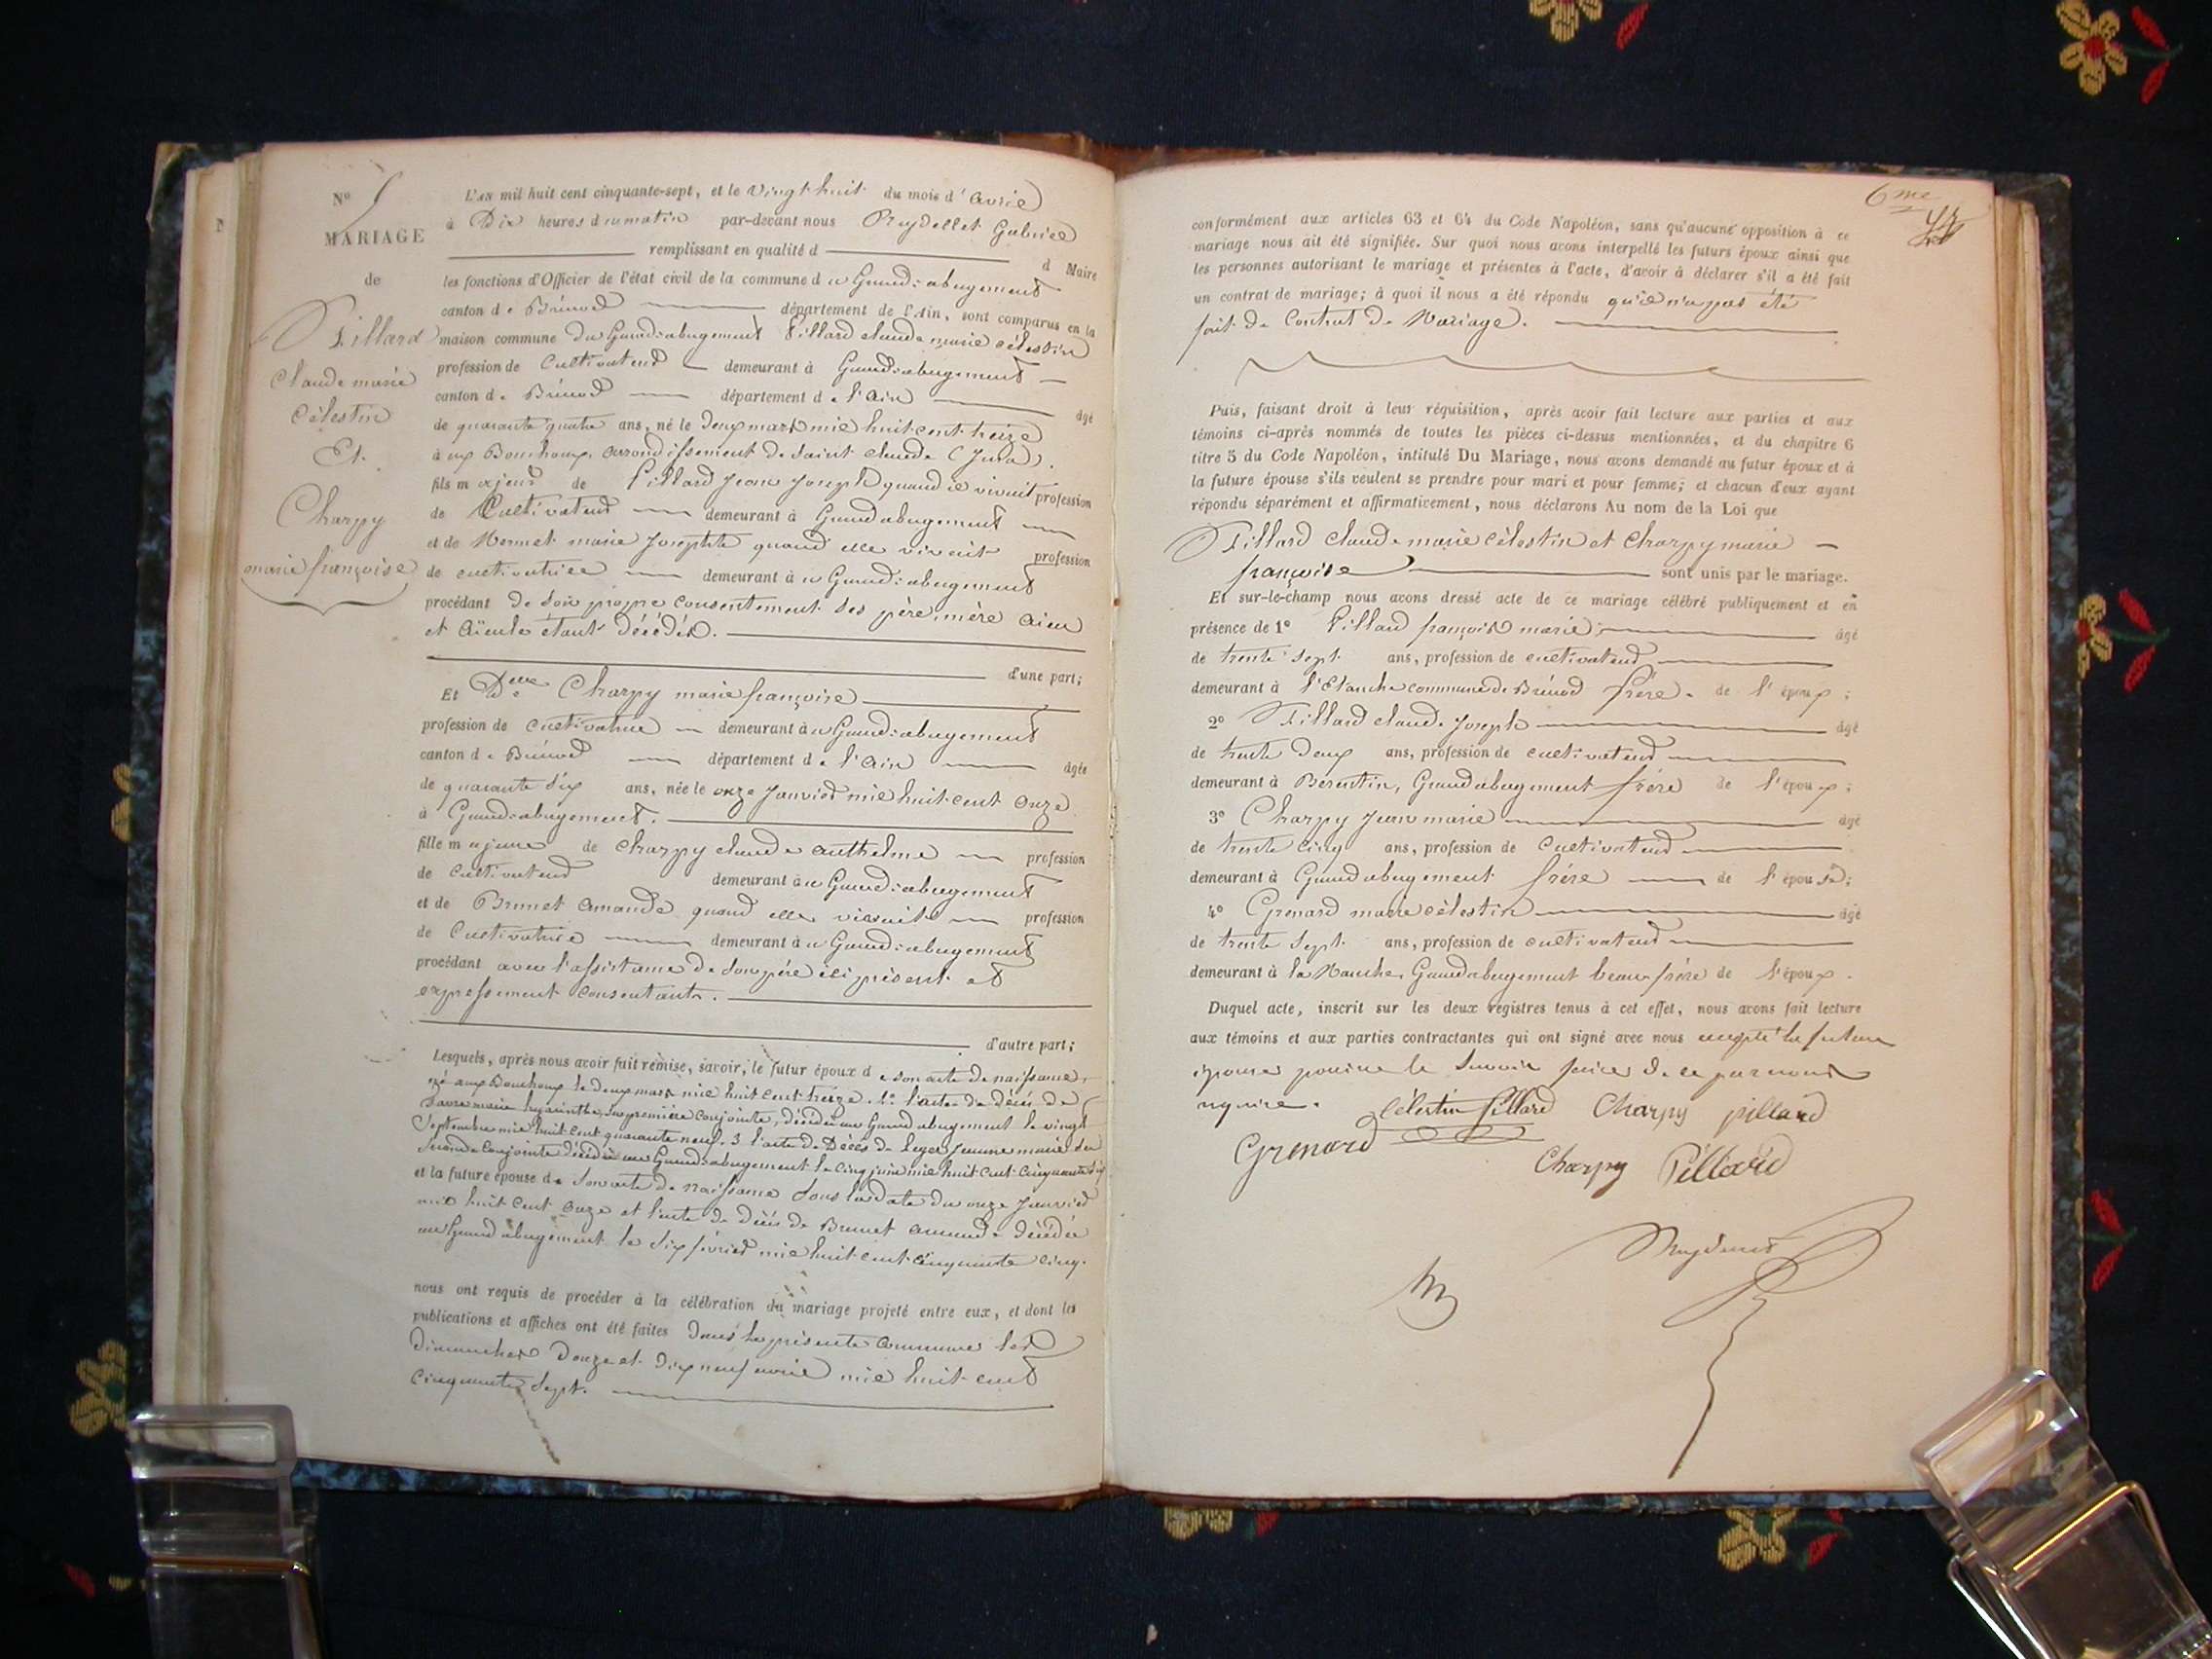 N° 5
MARIAGE
de
Pillard
Claude marie
Célestin
Et
Charpy
marie françoise
L'AN mil huit cent cinquante-sept, et le vingt huit du mois d'avril
à Dix heures du matin par-devant nous Preydellet Gabriel
remplissant en qualité d d Maire
les fonctions d'Officier de l'état civil de la commune du Grand-abergement
canton de Brénod département de l'Ain, sont comparus en la
maison commune du Grand-abergement Pillard claude marie célestin
profession de Cultivateur demeurant à Grand-abergement
canton de Brénod département de l'Ain âgé
de quarante quatre ans, né le deux mars mil huit cent treize
à aux Bouchoux, arrondissement de Saint claude (Jura).
fils majeur de Pillard Jean Joseph quand il vivait profession
de Cultivateur demeurant à Grand abergement
et de Mermet marie Josephte quand elle vivait profession
de cultivatrice demeurant à u Grand-abergement
procédant de son propre consentement ses père, mère aïeul
et aïeule étant décédés.
d'une part;
Et Delle Charpy marie françoise
profession de cultivatrice demeurant à u Grand-abergement
canton de Brénod département de l'Ain âgée
de quarante six ans, née le onze Janvier mil huit cent onze
à Grand-abergement.
fille majeure de Charpy claude anthelme profession
de Cultivateur demeurant à u Grand-abergement
et de Brunet Amande quand elle vivait profession
de Cultivatrice demeurant à u Grand-abergement
procédant avec l'assistance de son père ici présent et
expressement consentant.
d'autre part;
Lesquels, après nous avoir fait remise, savoir, le futur époux de son acte de naissance,
né aux Bouchoux le deux mars mil huit cent treize. 2° l'acte de décès de
marie hyacinthe, sa première conjointe, décédée au Grand abergement le vingt
Septembre mil huit cent quarante neuf. 3 l'acte de Décès de Leger Jeanne marie sa
seconde conjointe décédée au Grand-abergement le cinq juin mil huit cent cinquante six
et la future épouse de son acte de naissance sous la date du onze Janvier
mil huit cent onze et l'acte de décès de Brunet amande décédée
au Grand abergement le six février mil huit cent cinquante cinq.
nous ont requis de procéder à la célébration du mariage projeté entre eux, et dont les
publications et affiches ont été faites dans la présente commune les
dimanches douze et dix neuf avril mil huit cent
cinquante sept.
6me
conformément aux articles 63 et 64 du Code Napoléon, sans qu'aucune opposition à ce
mariage nous ait été signifiée. Sur quoi nous avons interpellé les futurs époux ainsi que
les personnes autorisant le mariage et présentes à l'acte, d'avoir à déclarer s'il a été fait
un contrat de mariage; à quoi il nous a été répondu qu'il n'a pas été
fait de Contrat de Mariage.
Puis, faisant droit à leur réquisition, après avoir fait lecture aux parties et aux
témoins ci-après nommés de toutes les pièces ci-dessus mentionnées, et du chapitre 6
titre 5 du Code Napoléon, intitulé Du Mariage, nous avons demandé au futur époux et à
la future épouse s'ils veulent se prendre pour mari et pour femme; et chacun d'eux ayant
répondu séparément et affirmativement, nous déclarons Au nom de la Loi que
Pillard claude marie célestin et Charpy marie
françoise sont unis par le mariage.
Et sur-le-champ nous avons dressé acte de ce mariage célébré publiquement et en
présence de 1° Pillard françois marie, âgé
de trente sept ans, profession de cultivateur
demeurant à l'Etanche commune de Brénod frère de l'époux;
2° Pillard claude Joseph âgé
de trente deux ans, profession de cultivateur
demeurant à Berentin, Grand abergement frère de l'époux;
3° Charpy Jean marie âgé
de trente cinq ans, profession de Cultivateur
demeurant à Grand abergement frère de l'épouse;
4° Grenard marie célestin âgé
de trente sept ans, profession de cultivateur
demeurant à la Manche, Grand abergement beau-frère de l'époux.
Duquel acte, inscrit sur les deux registres tenus à cet effet, nous avons fait lecture
aux témoins et aux parties contractantes qui ont signé avec nous excepté la future
épouse pour ne le savoir faire de ce par nous
requise. Célestin Pillard Charpy pillard
Grenard
Charpy Pillard